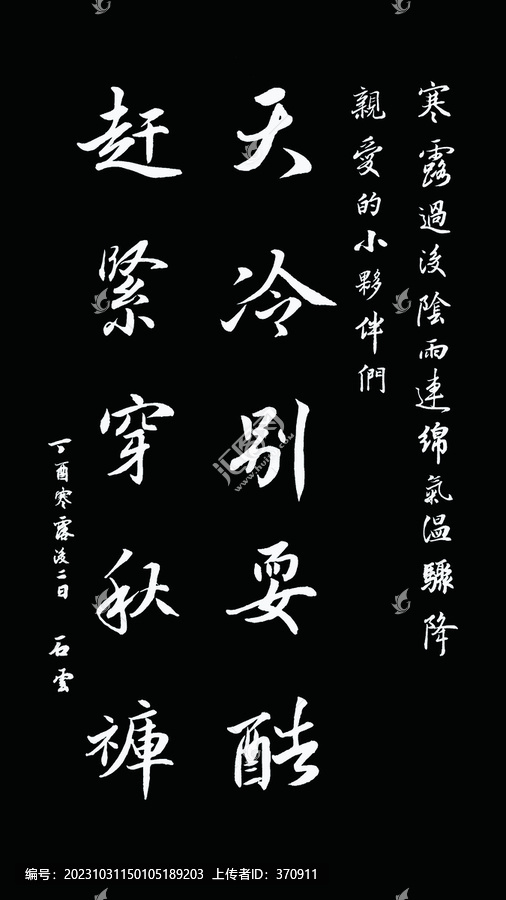 寒露過後陰雨連綿氣温驟降
親愛的小夥伴們
天冷别耍酷
赶緊穿秋褲
丁酉寒露後二日 石雲
汇图网
编号：20231031150105189203 上传者ID：370911